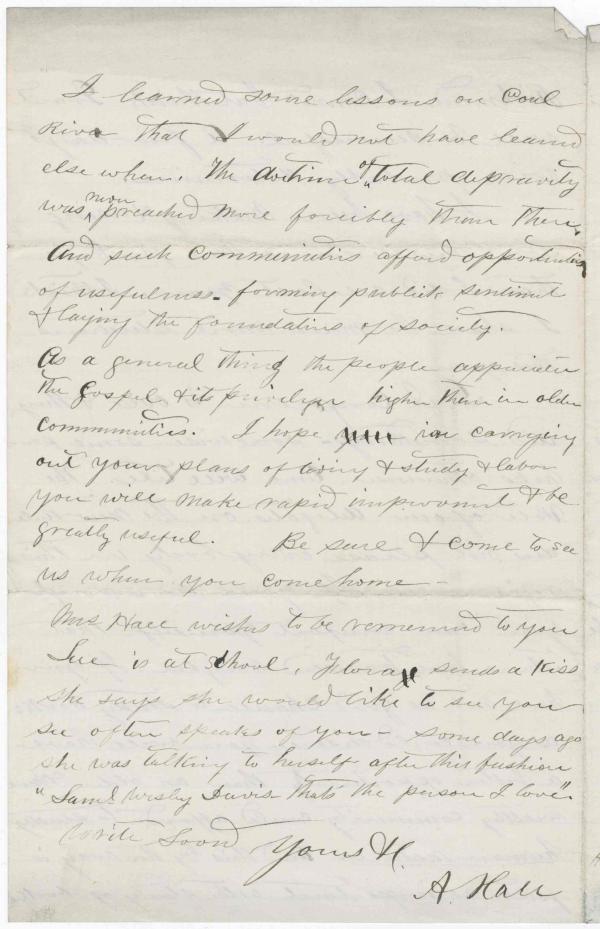 I learned some lessons on Coal
River that I would not have learnd
else where. The doctrine of total depravity
was never preached more forcibly than there.
And such communities afford opportunities
of usefulness - forming publick sentiment
& laying the foundations of society.
As a general thing the people appreciate
the Gospel & its privileges higher than in older
communities. I hope in carrying
out your plans of living & study & labor
you will make rapid improvement & be
greatly useful. Be sure & come to see
us when you come home -
Mrs Hall wishes to be rememd to you
Sue is at school. Flora sends a Kiss
she says she would like to see you
se often speaks of you - some days ago
she was talking to herself after this fashion
"Saml Wesley Davis - that's the person I love".
Write Soon Yours &c.
A. Hall